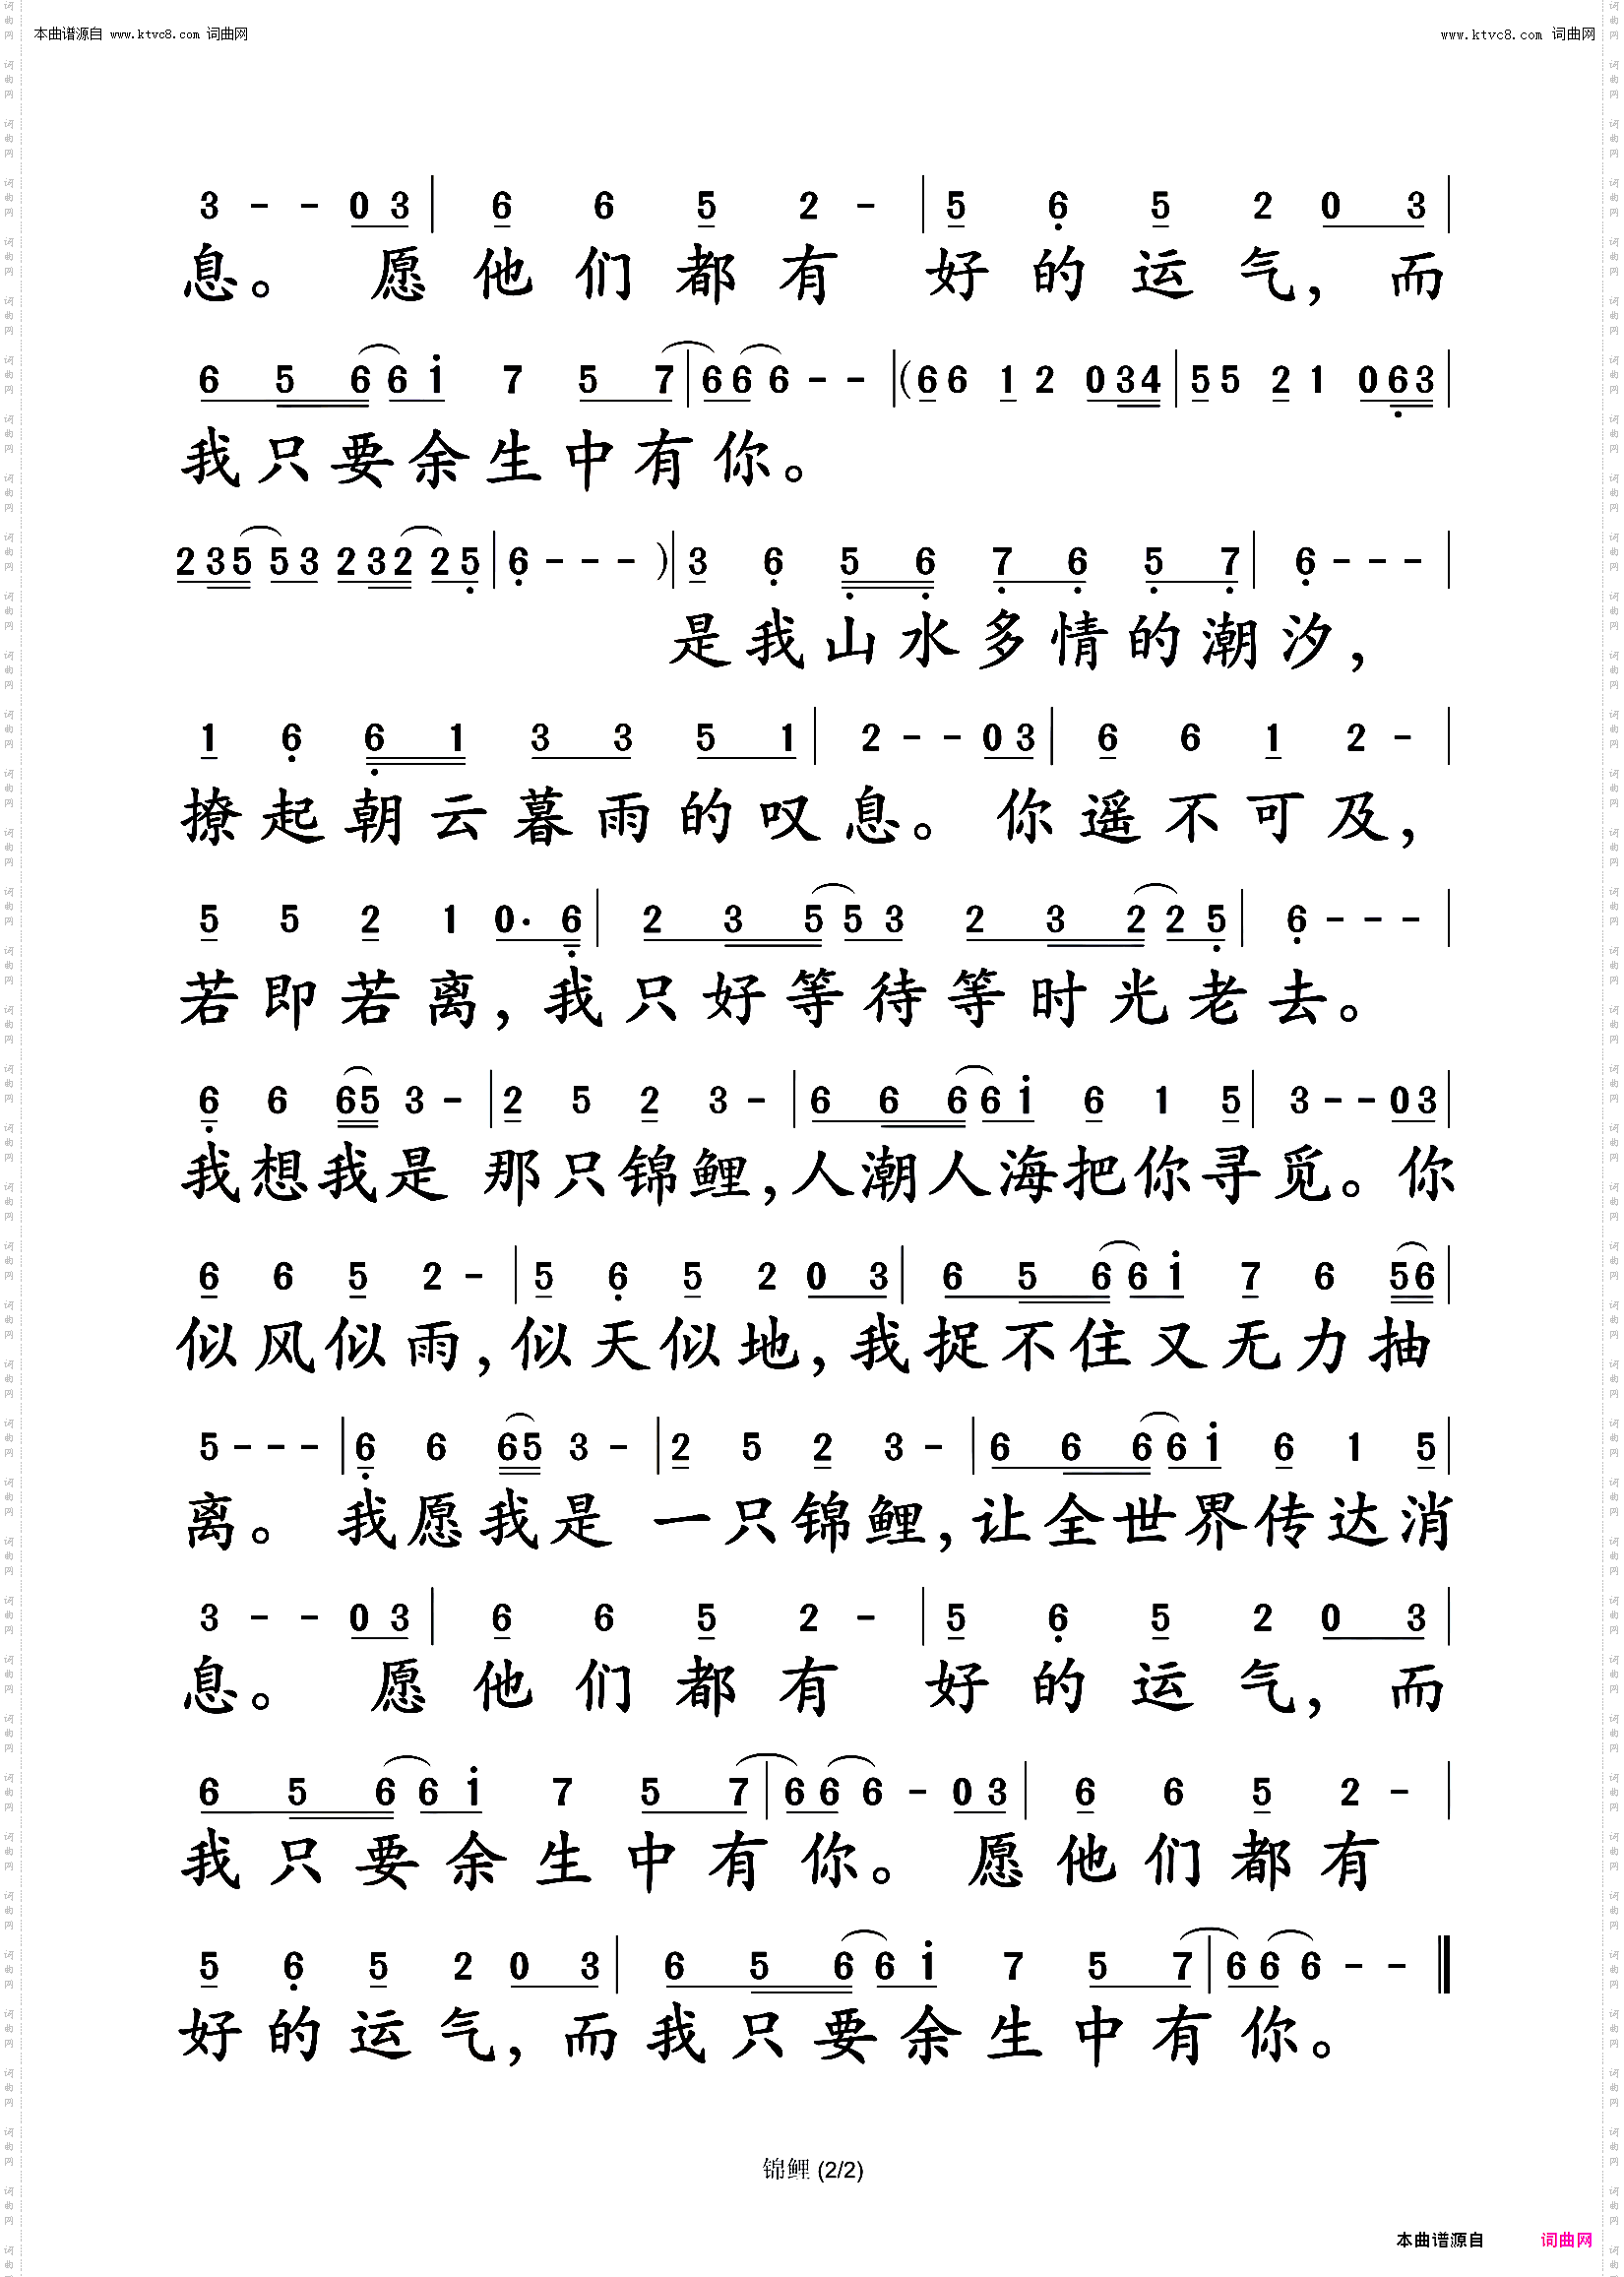 本曲谱源自 www.ktvc8.com 词曲网
www.ktvc8.com 词曲网
3 - - 0 3 | 6 6 5 2 - | 5 6 5 2 0 3 |
息。 愿 他 们 都 有 好 的 运 气, 而
6 5 6 6 i 7 5 7 | 6 6 6 - - | ( 6 6 1 2 0 3 4 | 5 5 2 1 0 6 3 |
我 只 要 余 生 中 有 你。
2 3 5 5 3 2 3 2 2 5 | 6 - - - ) | 3 6 5 6 7 6 5 7 | 6 - - - |
是 我 山 水 多 情 的 潮 汐,
1 6 6 1 3 3 5 1 | 2 - - 0 3 | 6 6 1 2 - |
撩 起 朝 云 暮 雨 的 叹 息。 你 遥 不 可 及,
5 5 2 1 0. 6 | 2 3 5 5 3 2 3 2 2 5 | 6 - - - |
若 即 若 离, 我 只 好 等 待 等 时 光 老 去。
6 6 6 5 3 - | 2 5 2 3 - | 6 6 6 6 i 6 1 5 | 3 - - 0 3 |
我 想 我 是 那 只 锦 鲤, 人 潮 人 海 把 你 寻 觅。 你
6 6 5 2 - | 5 6 5 2 0 3 | 6 5 6 6 i 7 6 5 6 |
似 风 似 雨, 似 天 似 地, 我 捉 不 住 又 无 力 抽
5 - - - | 6 6 6 5 3 - | 2 5 2 3 - | 6 6 6 6 i 6 1 5 |
离。 我 愿 我 是 一 只 锦 鲤, 让 全 世 界 传 达 消
3 - - 0 3 | 6 6 5 2 - | 5 6 5 2 0 3 |
息。 愿 他 们 都 有 好 的 运 气, 而
6 5 6 6 i 7 5 7 | 6 6 6 - 0 3 | 6 6 5 2 - |
我 只 要 余 生 中 有 你。 愿 他 们 都 有
5 6 5 2 0 3 | 6 5 6 6 i 7 5 7 | 6 6 6 - - ‖
好 的 运 气, 而 我 只 要 余 生 中 有 你。
锦鲤 (2/2)
本曲谱源自 词曲网